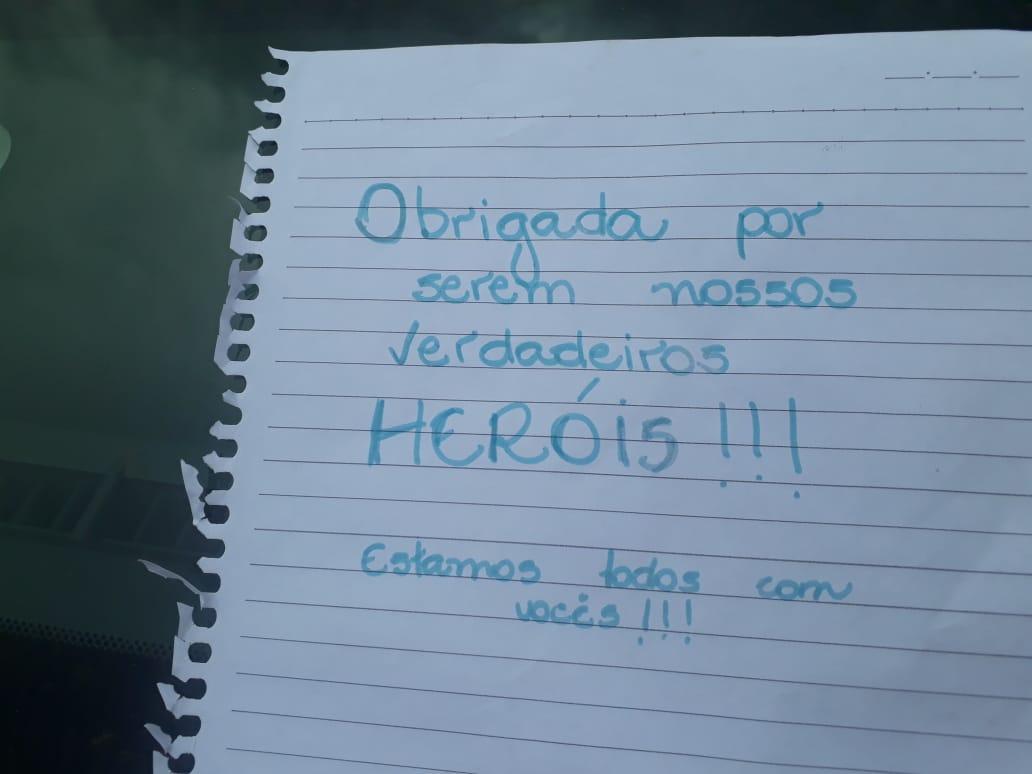 Obrigada por
serem nossos
verdadeiros
HERÓIS !!!
Estamos todos com
vocês !!!